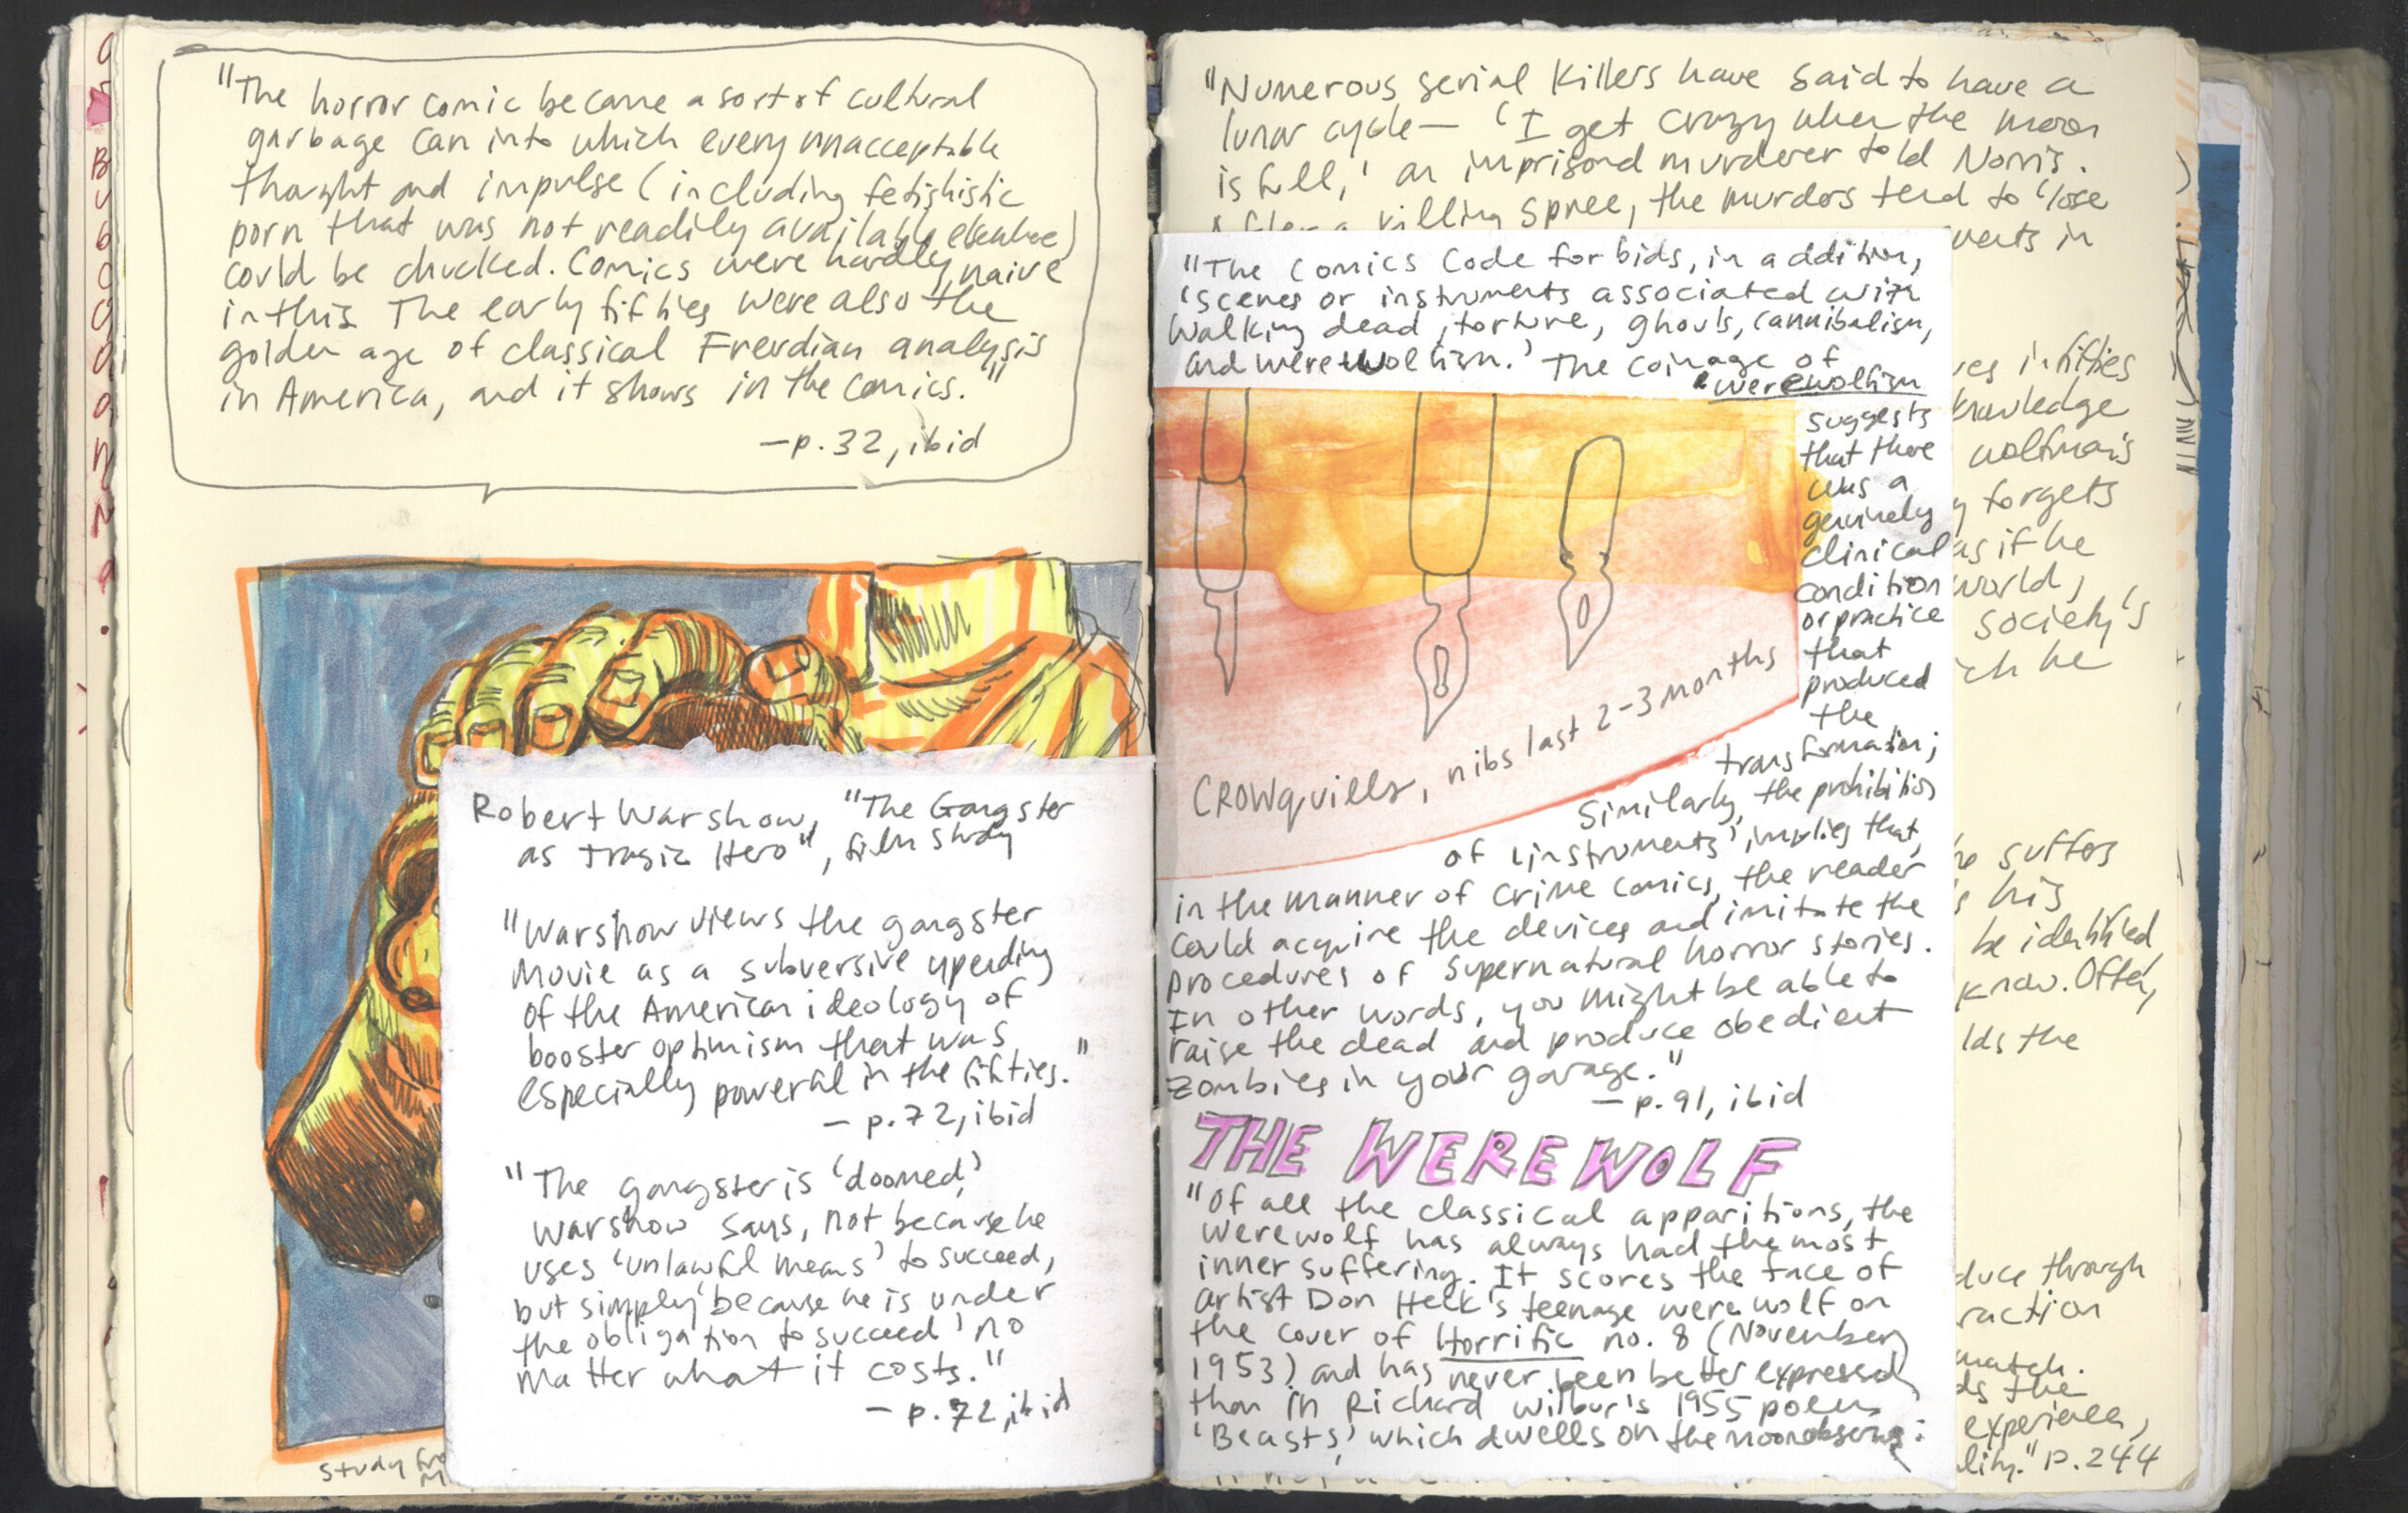 "The horror comic became a sort of cultural
garbage can into which every unacceptable
thought and impulse (including fetishistic
porn that was not readily available elsewhere)
could be chucked. Comics were hardly naive
in this. The early fifties were also the
golden age of classical Freudian analysis
in America, and it shows in the comics."
—p. 32, ibid
Robert Warshow, "The Gangster
as Tragic Hero", film study
"Warshow views the gangster
movie as a subversive upending
of the American ideology of
booster optimism that was
especially powerful in the fifties."
— p. 72, ibid
"The gangster is 'doomed,'
Warshow says, not because he
uses 'unlawful means' to succeed,
but simply 'because he is under
the obligation to succeed' no
matter what it costs."
— p. 72, ibid
study
"Numerous serial killers have said to have a
lunar cycle— 'I get crazy when the moon
is full,' an imprisond murderer told Norris.
killing spree, the murders tend to 'lose
in
"The Comics Code forbids, in addition,
'scenes or instruments associated with
walking dead, torture, ghouls, cannibalism,
and werewolfism.' The coinage of
'werewolfism
suggests
that there
was a
genuinely
clinical
condition
or practice
that
produced
the
transformation;
similarly, the prohibition
of 'instruments' implies that,
in the manner of crime comics, the reader
could acquire the devices and imitate the
procedures of supernatural horror stories.
In other words, you might be able to
raise the dead and produce obedient
zombies in your garage."
— p. 91, ibid
CROWquills, nibs last 2-3 months
THE WEREWOLF
"Of all the classical apparitions, the
werewolf has always had the most
inner suffering. It scores the face of
artist Don Heck's teenage werewolf on
the cover of Horrific no. 8 (November
1953) and has never been better expressed
than in Richard Wilbur's 1955 poem
'Beasts,' which dwells on the
in fifties
knowledge
wolfman's
forgets
as if he
world,
society's
he
suffers
his
be identified,
know. Often,
the
through
match.
the
experience,
p. 244